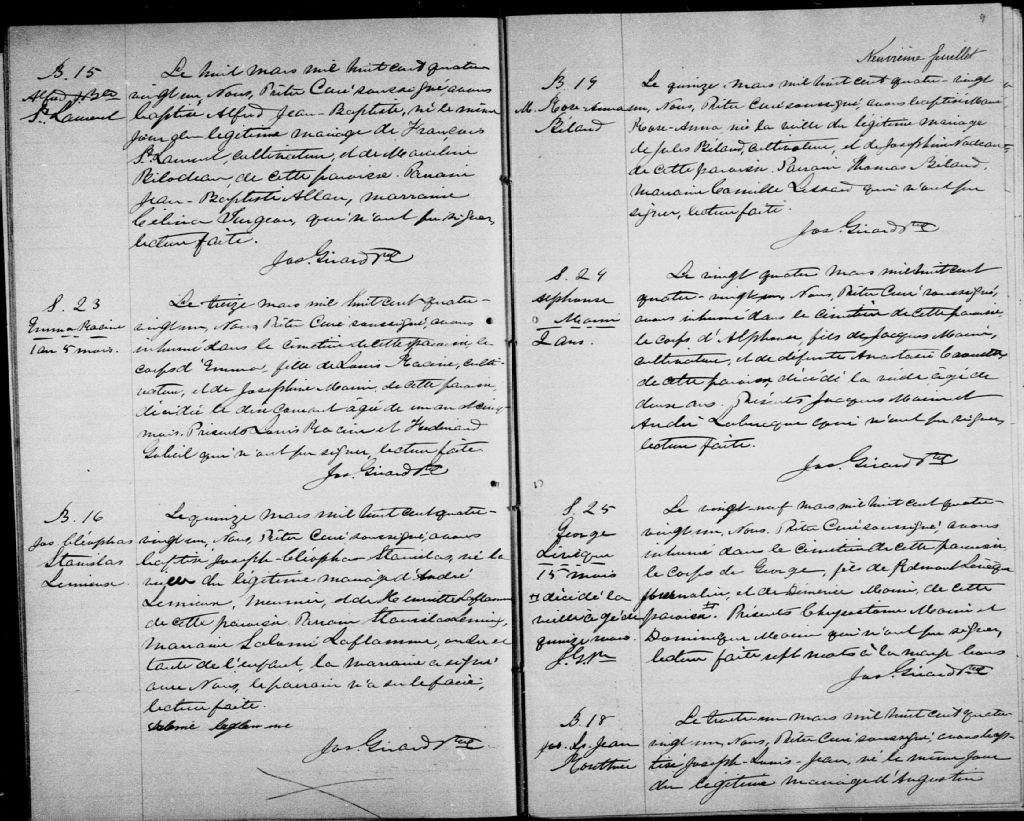 B. 15
Alfred J. Bte
St. Laurent
Le huit mars mil huit cent quatre
vingt un, Nous, Prêtre Curé soussigné, avons
baptisé Alfred Jean-Baptiste, né le même
jour du légitime mariage de François
St. Laurent cultivateur, et de
Bilodeau, de cette paroisse. Parrain
Jean-Baptiste Allan, marraine
Celina Turgeon, qui n'ont pu signer,
lecture faite.
Jos. Girard Ptre
S. 23
Emma Racine
1 an 5 mois.
Le treize mars mil huit cent quatre-
vingt un, Nous, Prêtre Curé soussigné, avons
inhumé dans le cimetière de cette paroisse, le
corps d'Emma, fille de Louis Racine, culti-
vateur, et de Josephine Morin, de cette paroisse,
décédée le dix courant âgée de un an et cinq
mois. Présents Louis Racine et Ferdinand
qui n'ont pu signer, lecture faite.
Jos. Girard Ptre
B. 16
Jos. Cléophas
Stanislas
Lemieux
Le quinze mars mil huit cent quatre-
vingt un, Nous, Prêtre Curé soussigné, avons
baptisé Joseph-Cléophas Stanislas, né la
veille du légitime mariage d'André
Lemieux, meunier, et de Henriette Laflamme
de cette paroisse. Parrain Stanislas Lemieux,
Marraine Salomé Laflamme, oncle et
tante de l'enfant, la marraine a signé
avec Nous, le parrain n'a su le faire,
lecture faite.
Salomé laflamme
Jos. Girard Ptre
9
Neuvième feuillet
B. 19
M. Rose-Anna
Béland
Le quinze mars mil huit cent quatre-vingt
un, Nous, Prêtre Curé soussigné, avons baptisé Marie
Rose-Anna, née la veille du légitime mariage
de Jules Béland, cultivateur, et de Josephine Nadeau
de cette paroisse. Parrain Thomas Béland,
marraine Camille Lessard qui n'ont pu
signer, lecture faite.
Jos. Girard Ptre
S. 24
Alphonse
Morin
2 ans.
Le vingt quatre mars mil huit cent
quatre-vingt un, Nous, Prêtre Curé soussigné,
avons inhumé dans le cimetière de cette paroisse,
le corps d'Alphonse, fils de Jacques Morin,
cultivateur, et de défunte Anastasie
de cette paroisse, décédé la veille âgé de
deux ans. Présents Jacques Morin et
André Labrecque qui n'ont pu signer,
lecture faite.
Jos. Girard Ptre
S. 25
George
Lévêque
15 mois
décédé la
veille âgé de
quinze mois.
J. G. Ptre
Le vingt-neuf mars mil huit cent quatre-
vingt un, Nous, Prêtre Curé soussigné, avons
inhumé dans le cimetière de cette paroisse,
le corps de George, fils de Edmond Lévêque
journalier, et de Démerise Morin, de cette
paroisse. Présents Chrysostome Morin et
Dominique Morin qui n'ont pu signer,
lecture faite sept mots à la marge bons
Jos. Girard Ptre
B. 18
Jos. Ls. Jean
Routhier
Le trente un mars mil huit cent quatre
vingt un, Nous, Prêtre Curé soussigné, avons bap-
tisé Joseph-Louis-Jean, né le même jour
du légitime mariage d'Augustin